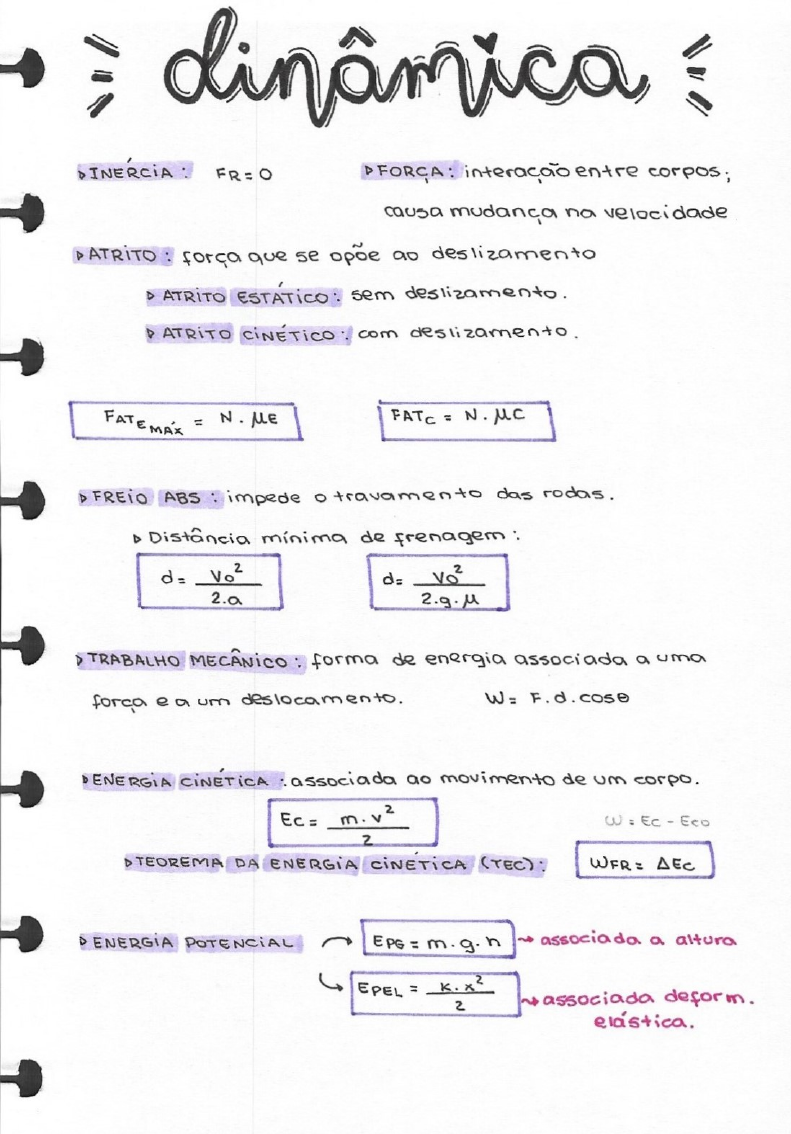 dinâmica
▷INÉRCIA: FR = 0
▷FORÇA: interação entre corpos;
causa mudança na velocidade
▷ATRITO: força que se opõe ao deslizamento
▷ATRITO ESTÁTICO: sem deslizamento.
▷ATRITO CINÉTICO: com deslizamento.
FATEMÁX = N . μE
FATC = N . μC
▷FREIO ABS: impede o travamento das rodas.
▷Distância mínima de frenagem:
d = Vo²/2.a
d = Vo²/2.g.μ
▷TRABALHO MECÂNICO: forma de energia associada a uma
força e a um deslocamento. W = F.d.cosθ
▷ENERGIA CINÉTICA: associada ao movimento de um corpo.
Ec = m.v²/2
W = Ec - Eco
▷TEOREMA DA ENERGIA CINÉTICA (TEC): WFR = ΔEc
▷ENERGIA POTENCIAL
EPG = m.g.h → associada a altura
EPEL = K.x²/2 → associada deform.
elástica.